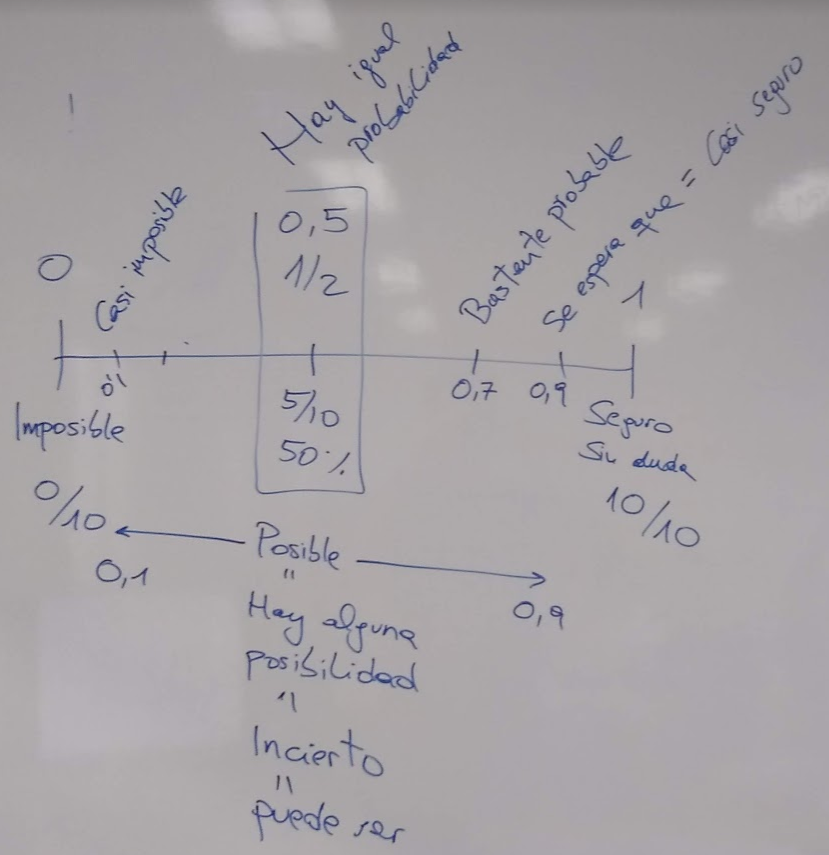 Hay igual
probabilidad
0
Casi imposible
0,5
1/2
Bastante probable
Se espera que = Casi seguro
1
0,1
Imposible
0/10
5/10
50%
0,7
0,9
Seguro
Sin duda
10/10
Posible
0,1
0,9
"
Hay alguna
posibilidad
"
Incierto
"
puede ser